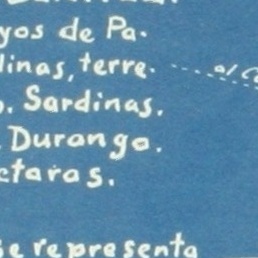 yos de Pa-
linas, terre-
al Ca
o. Sardinas.
Durango.
ctaras.
se representa